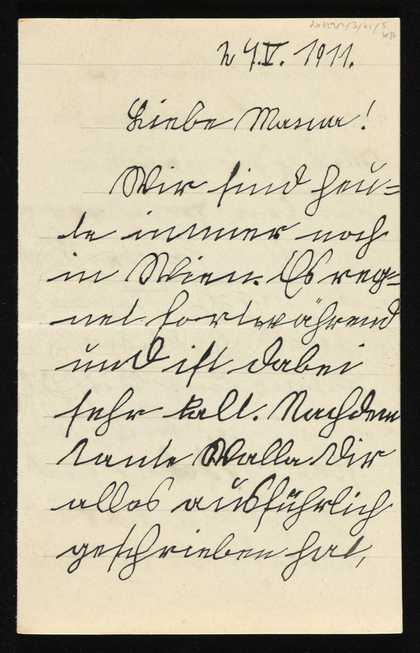 24.V. 1911.
Liebe Mama!
Wir sind heu=
te immer noch
in Wien. Es reg=
net fortwährend
und ist dabei
sehr kalt. Nachdem
tante Walla Dir
alles ausführlich
geschrieben hat,